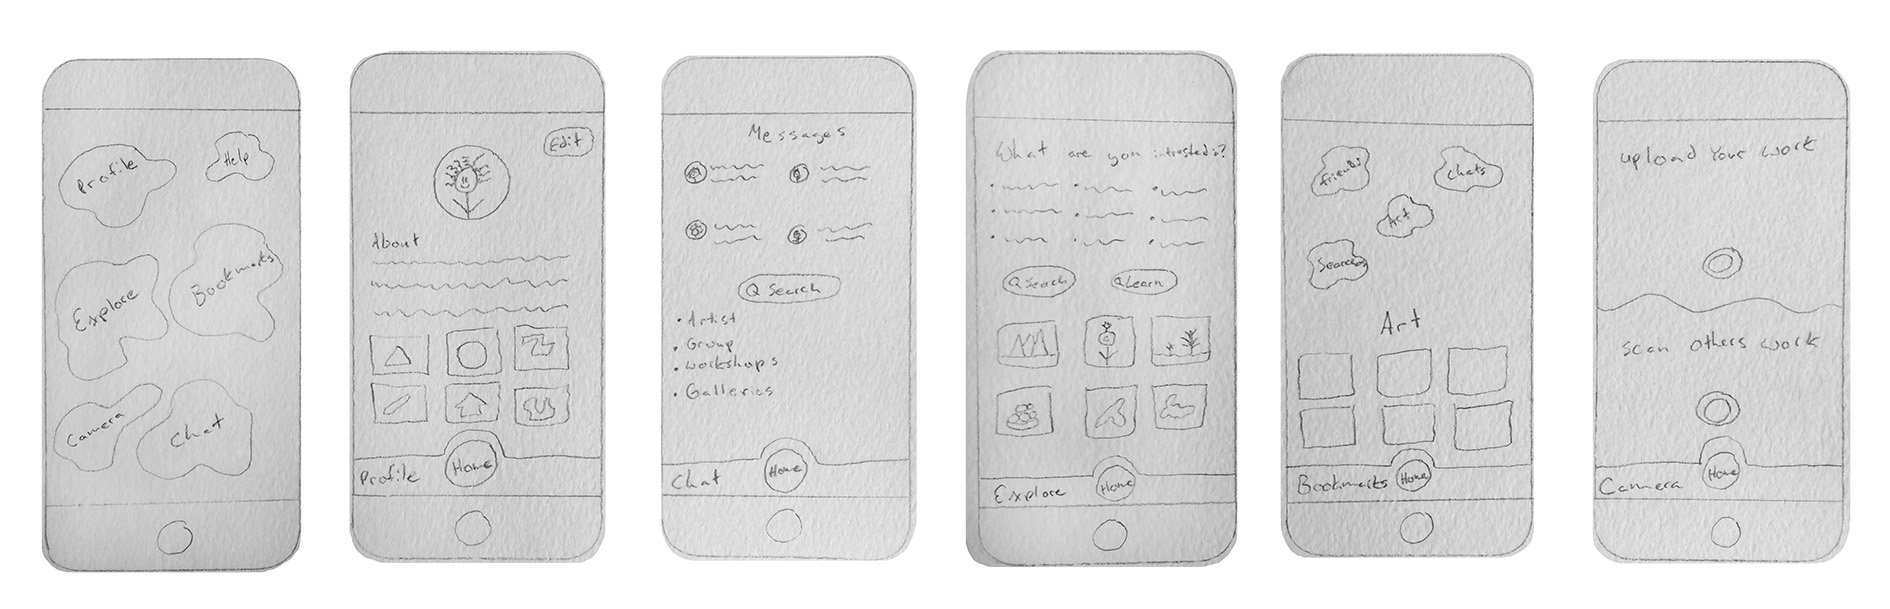 Profile
Help
Explore
Bookmarks
Camera
Chat
Edit
About
Profile
Home
Messages
Search
Artist
Group
Workshops
Galleries
Chat
Home
What are you introsted in?
Search
Learn
Explore
Home
friends
Chats
Art
Search
Art
Bookmarks
Home
upload Your work
scan others work
Camera
Home